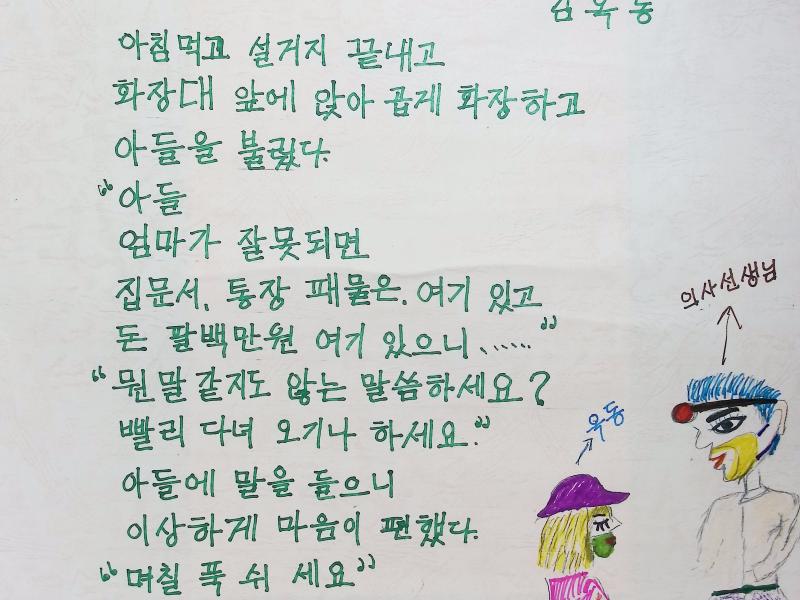 김옥동
아침먹고 설거지 끝내고
화장대 앞에 앉아 곱게 화장하고
아들을 불렀다.
“아들
엄마가 잘못되면
집문서, 통장 패물은. 여기 있고
돈 팔백만원 여기 있으니.......”
“뭔 말같지도 않는 말씀하세요?
빨리 다녀 오기나 하세요.”
아들에 말을 들으니
이상하게 마음이 편했다.
“며칠 푹 쉬 세요”
의사선생님
옥동